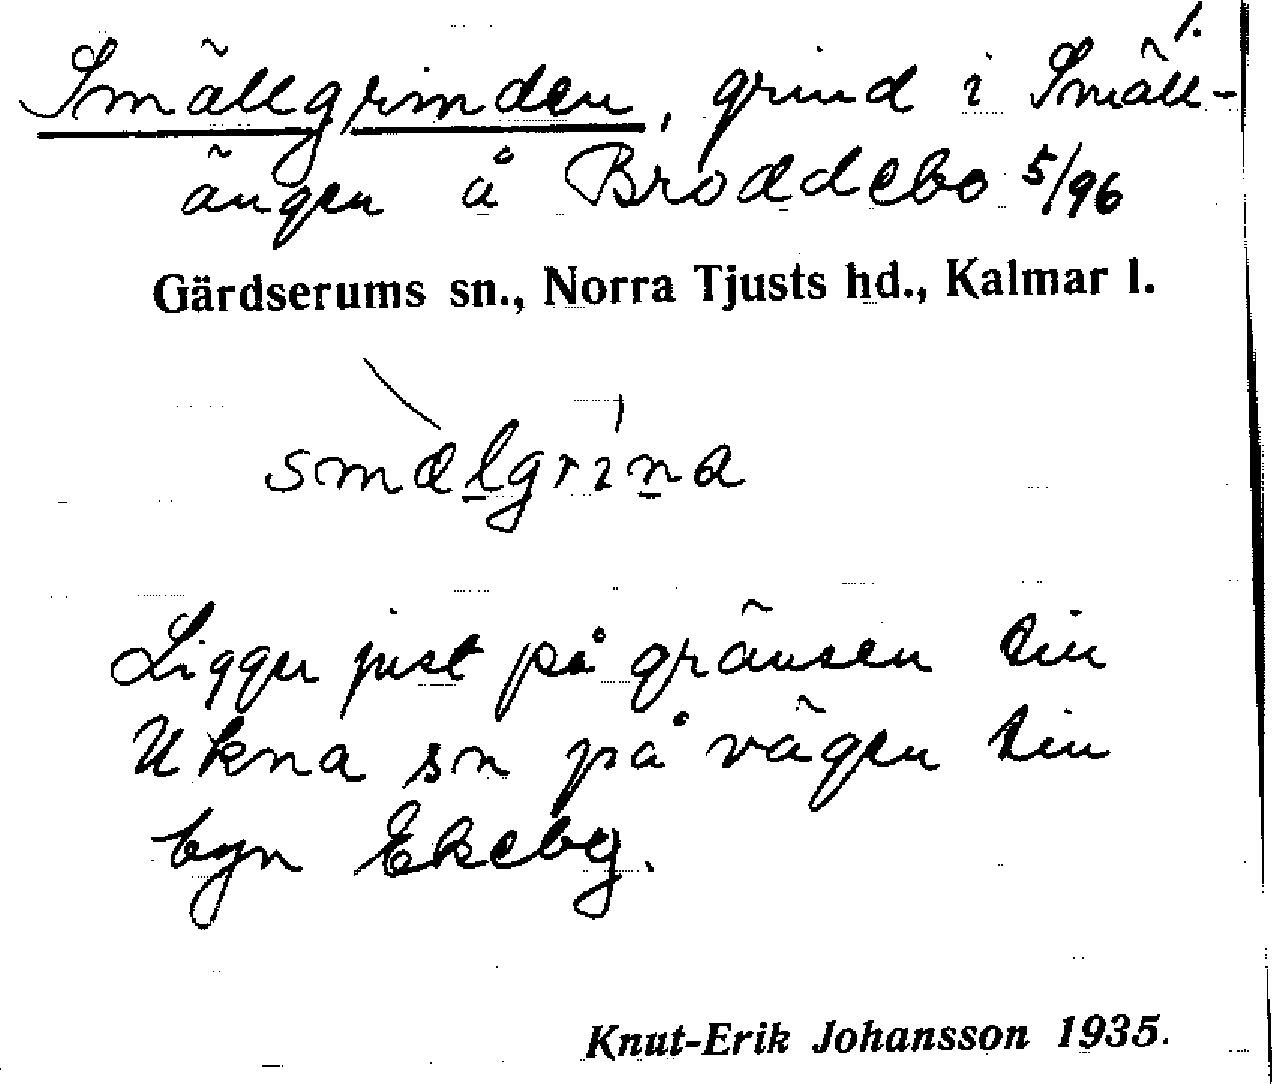 1.
Smällgrinden, grind i Smäll-
ängen å Broddebo 5/96
Gärdserums sn., Norra Tjusts hd., Kalmar l.
smælgrina
Ligger just på gränsen till
Ukna sn på vägen till
byn Ekeby.
Knut-Erik Johansson 1935.